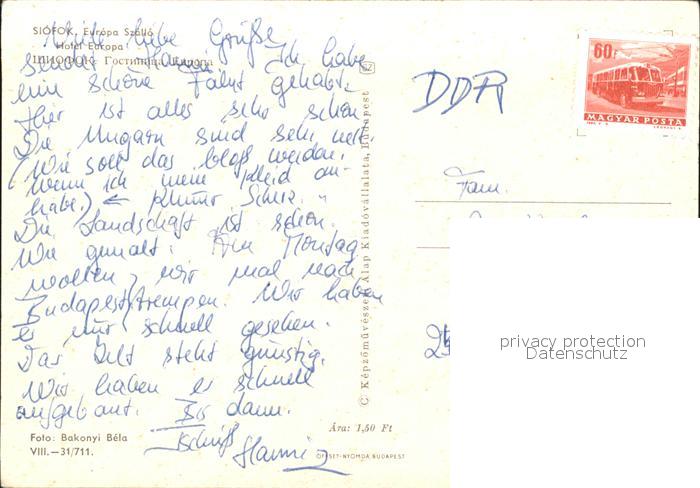 SIÓFOK. Európa Szálló
Hotel Europa
ШИОФОК. Гостиница Европа
liebe Grüße
sendet Ich habe
eine schöne Fahrt gehabt.
Hier ist alles sehr schön.
Die Ungarn sind sehr nett
(Wie soll das bloß werden,
wenn ich mein Kleid an-
habe.) ←
Die Landschaft ist schön.
Wie gemalt. Am Montag
wollen wir mal nach
Budapest trempen. Wir haben
es nur schnell gesehen.
Das Zelt steht günstig.
Wir haben es schnell
aufgebaut. Bis dann.
Tschüß
Hanni
Foto: Bakonyi Béla
VIII.—31/711.
Ára: 1,50 Ft
OFFSET-NYOMDA BUDAPEST
© Képzőművészeti Alap Kiadóvállalata, Budapest
DDR
60f
MAGYAR POSTA
Fam.
25
privacy protection
Datenschutz